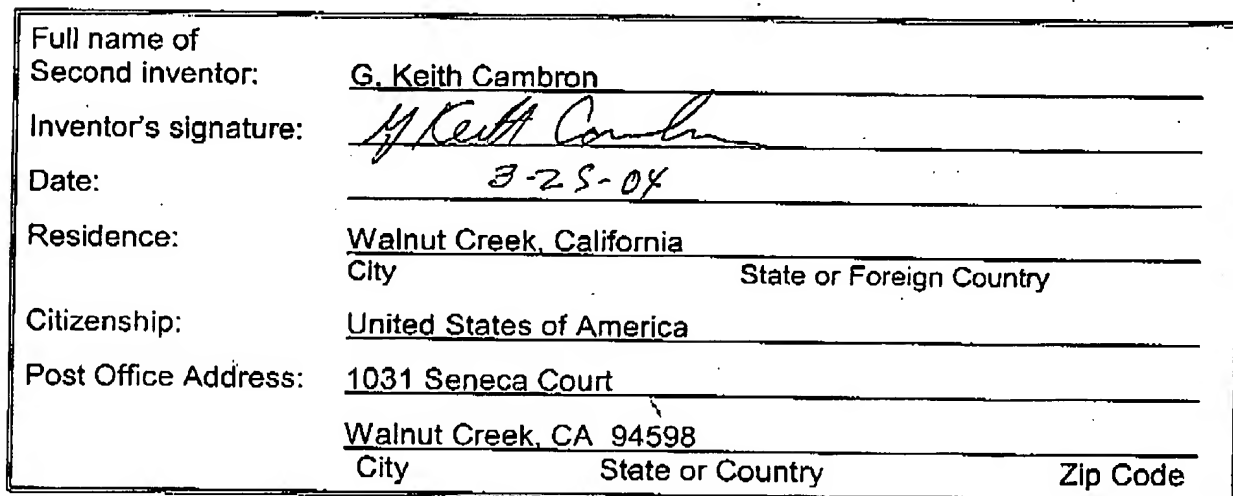 Full name of
Second inventor: G. Keith Cambron
Inventor's signature: G Keith Cambron
Date: 3-25-04
Residence: Walnut Creek, California
City State or Foreign Country
Citizenship: United States of America
Post Office Address: 1031 Seneca Court
Walnut Creek, CA 94598
City State or Country Zip Code